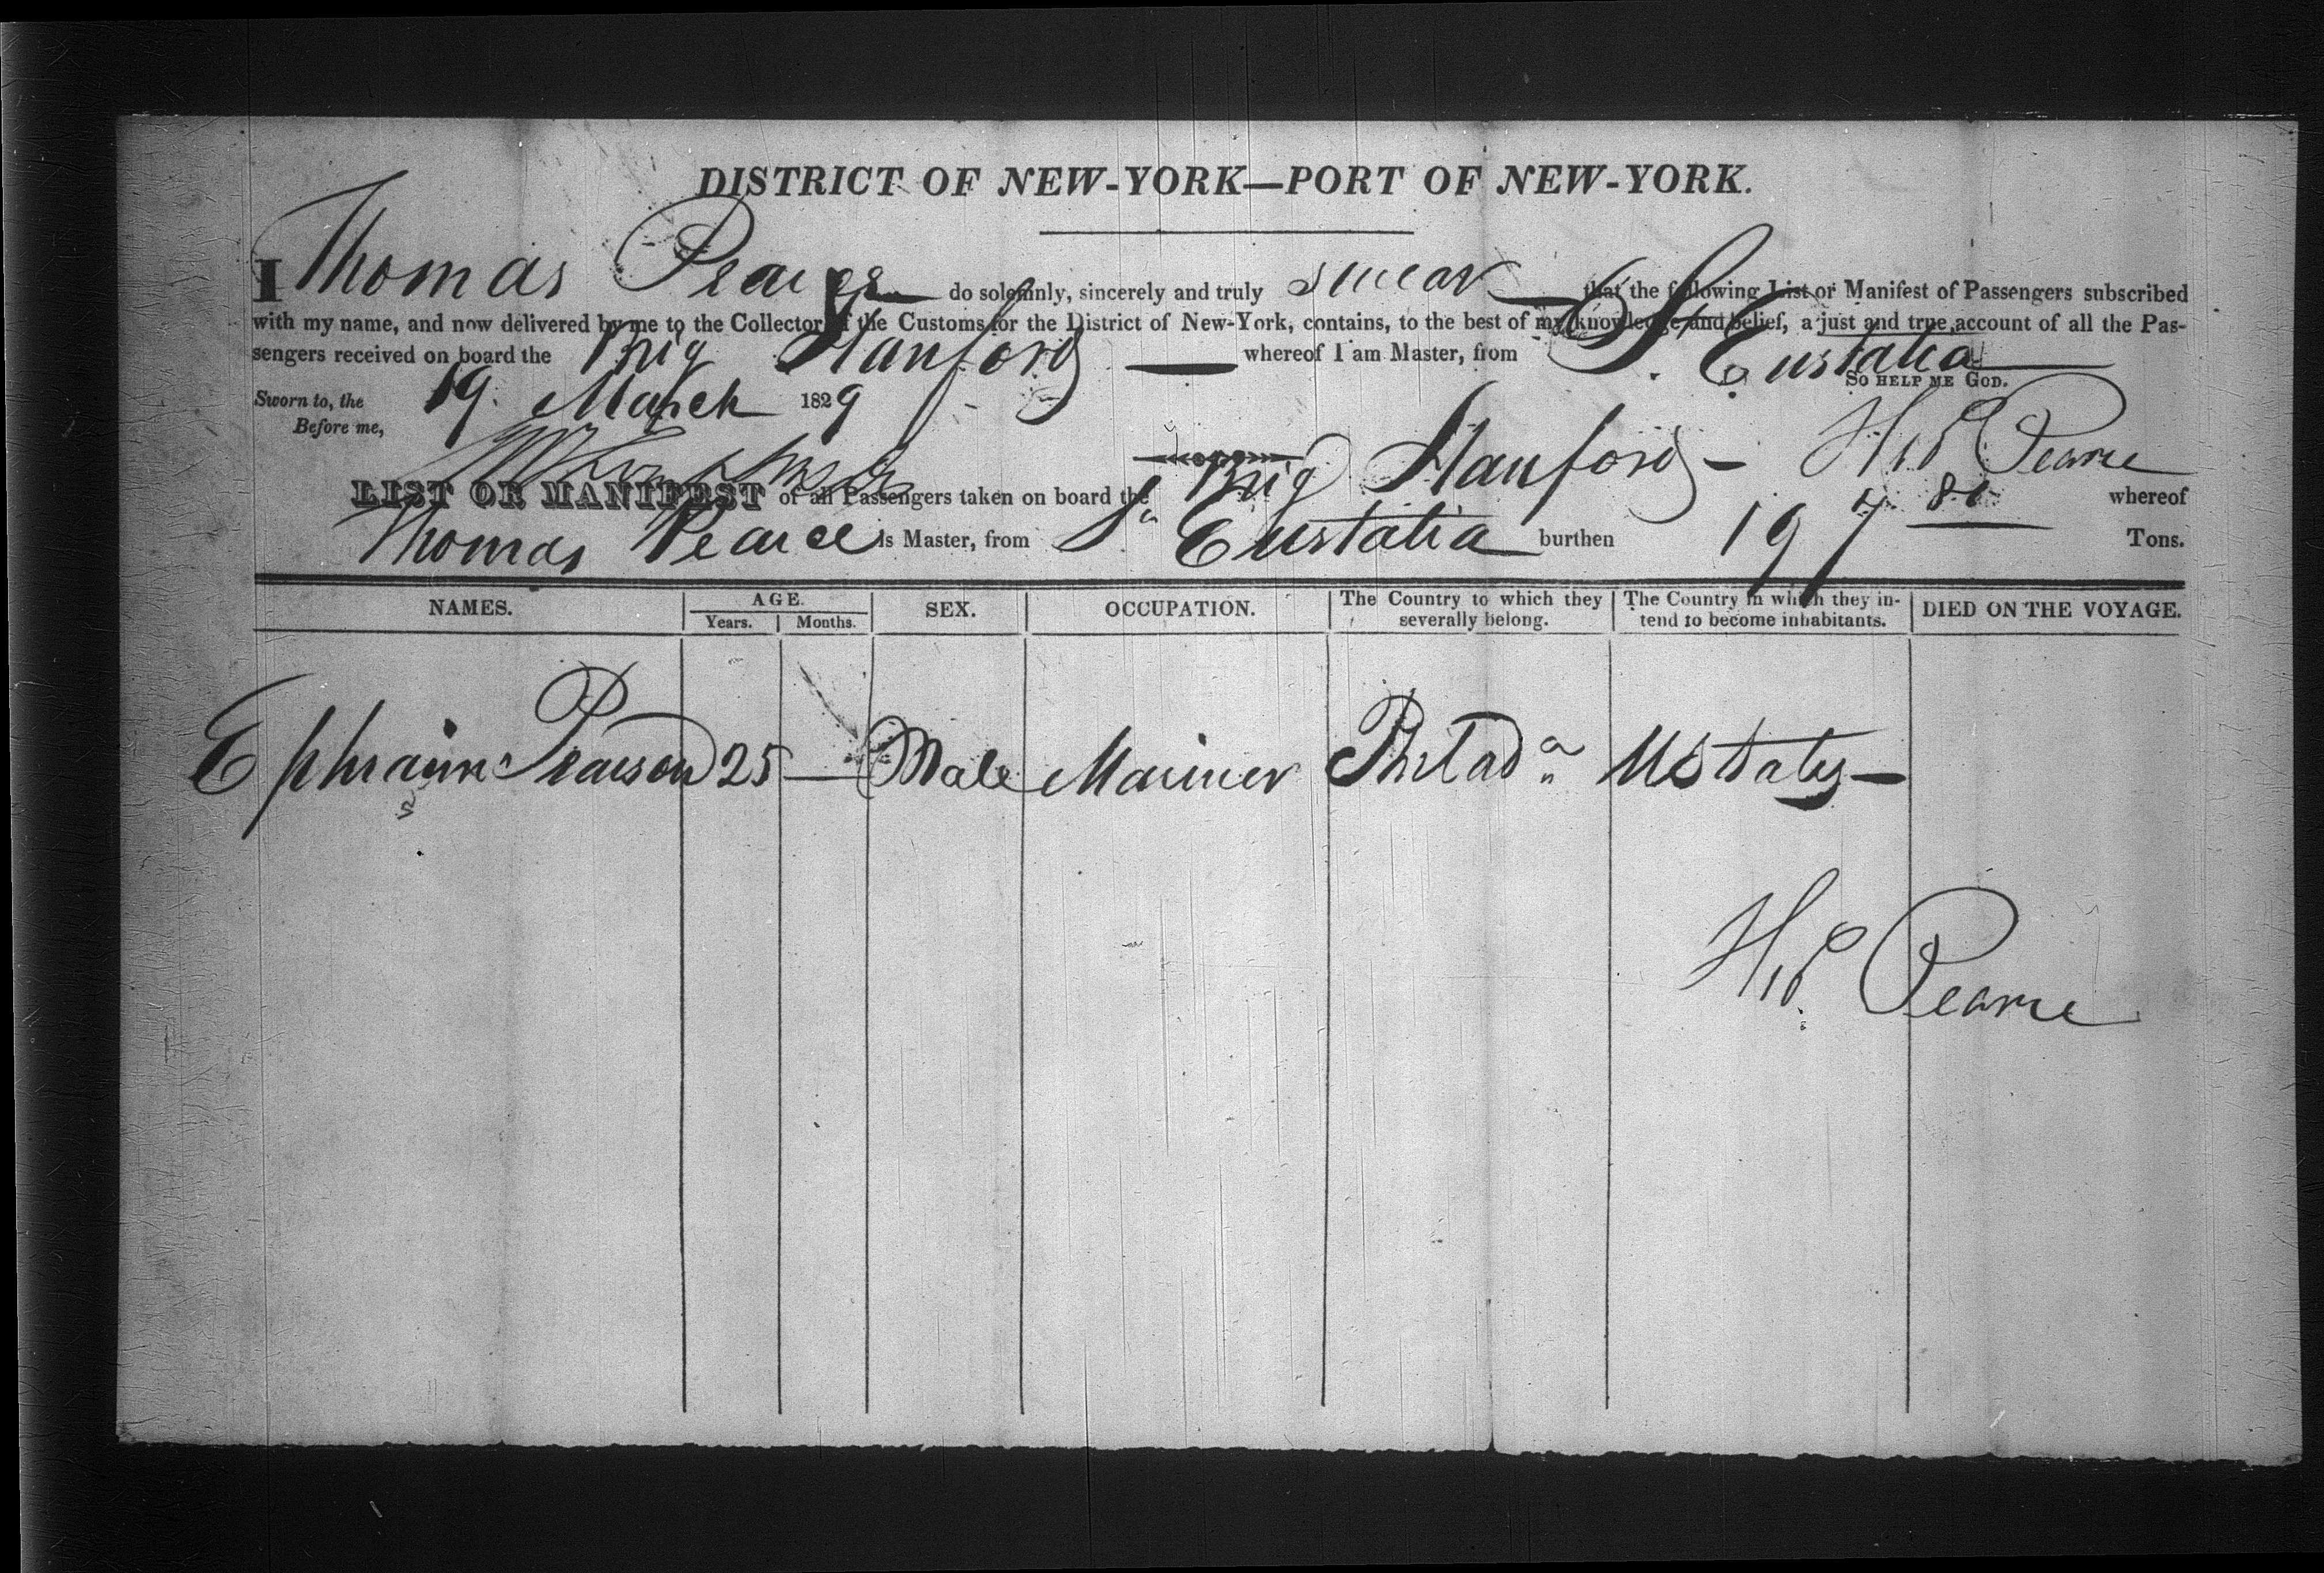 DISTRICT OF NEW-YORK—PORT OF NEW-YORK.
I Thomas Pearce do solemnly, sincerely and truly swear that the following List or Manifest of Passengers subscribed
with my name, and now delivered by me to the Collector of the Customs for the District of New-York, contains, to the best of my knowledge and belief, a just and true account of all the Pas-
sengers received on board the Brig Hanford whereof I am Master, from St. Eustatia
So help me God.
Sworn to, the 19 March 1829
Before me,
Pearce
LIST OR MANIFEST of all Passengers taken on board the Brig Hanford — whereof
Thomas Pearce is Master, from St. Eustatia burthen 197 Tons.
NAMES. AGE. SEX. OCCUPATION. The Country to which they severally belong. The Country in which they in-tend to become inhabitants. DIED ON THE VOYAGE.
Years. Months.
Ephraim Pearson 25 — Male Mariner Philada U States —
Pearce